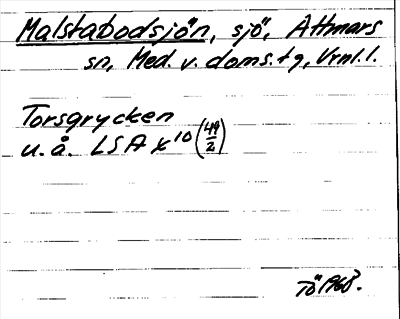 Malstabodsjön, sjö, Attmars
sn, Med. v. doms.tg, Vrnl.l.
Torsgrycken
u.å. LSA x10 (49/2)
Tö 1968.